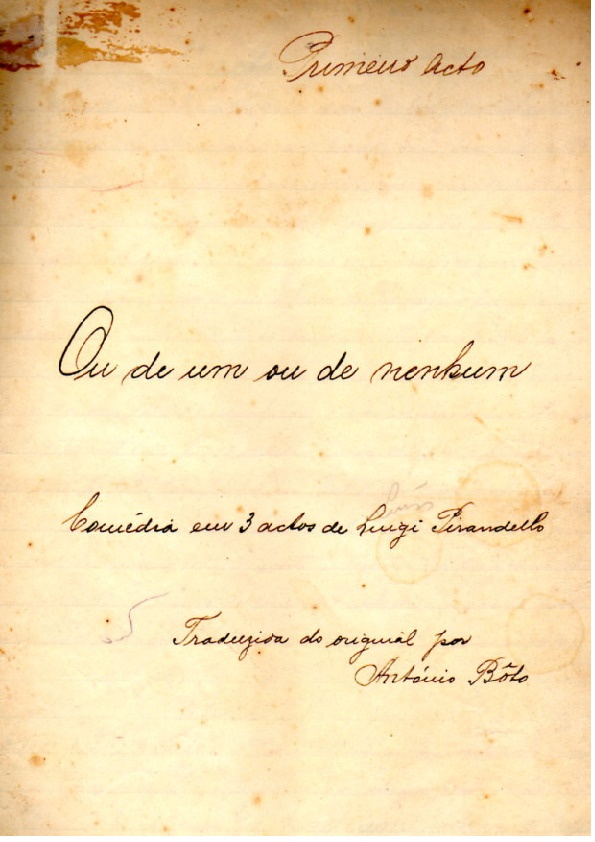 Primeiro Acto
Ou de um ou de nenhum
Comédia em 3 actos de Luigi Pirandello
Traduzida do original por
António Bôto